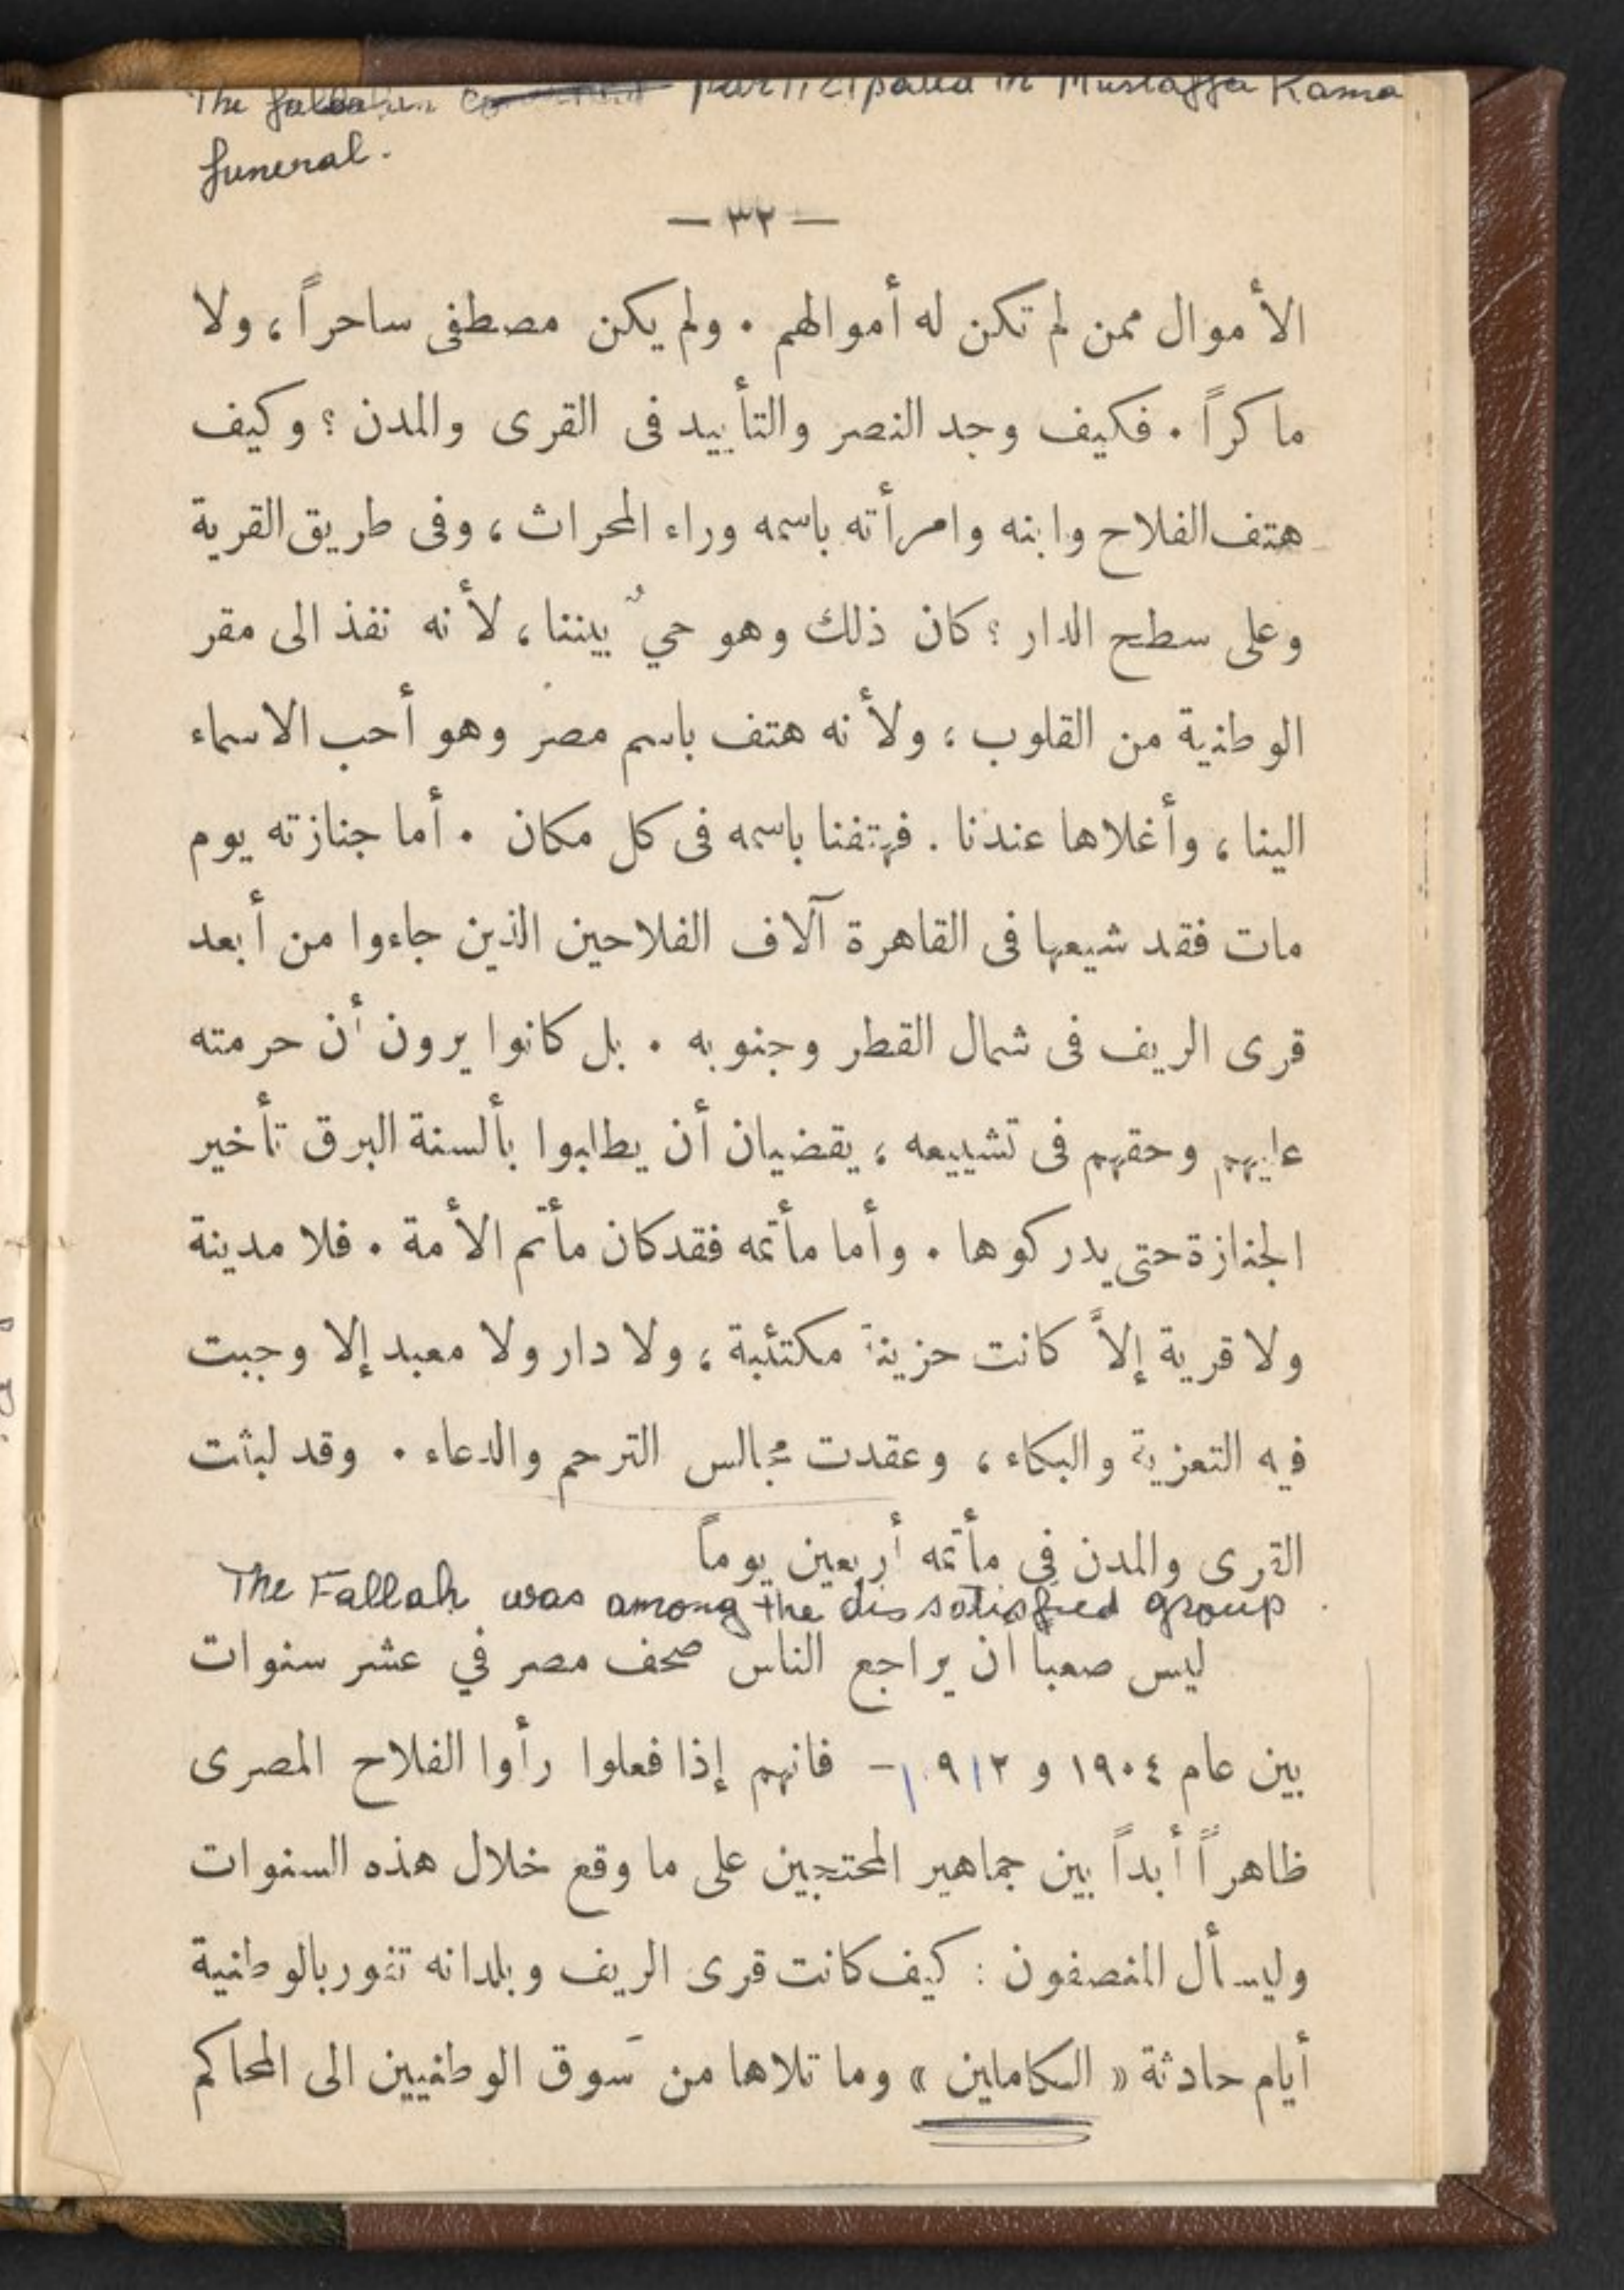 The fallahin participated in Mustaffa Kama
funeral.
— ٣٢ —
الأموال ممن لم تكن له أموالهم . ولم يكن مصطفى ساحراً ، ولا
ماكراً . فكيف وجد النصر والتأييد فى القرى والمدن ؟ وكيف
هتف الفلاح وابنه وامرأته باسمه وراء المحراث ، وفى طريق القرية
وعلى سطح الدار ؟ كان ذلك وهو حيٌ بيننا ، لأنه نفذ الى مقر
الوطنية من القلوب ؛ ولأنه هتف باسم مصر وهو أحب الاسماء
الينا ، وأغلاها عندنا . فهتفنا باسمه فى كل مكان . أما جنازته يوم
مات فقد شيعها فى القاهرة آلاف الفلاحين الذين جاءوا من أبعد
قرى الريف فى شمال القطر وجنوبه . بل كانوا يرون أن حرمته
عليهم وحقهم فى تشييعه ؛ يقضيان أن يطالبوا بألسنة البرق تأخير
الجنازة حتى يدركوها . وأما مأتمه فقد كان مأتم الأمة . فلا مدينة
ولا قرية إلاَّ كانت حزينة مكتئبة ؛ ولا دار ولا معبد إلا وجبت
فيه التعزية والبكاء ، وعقدت مجالس الترحم والدعاء . وقد لبثت
القرى والمدن في مأتمه أربعين يوماً
The Fallah was among the dissatisfied group.
ليس صعبا أن يراجع الناس صحف مصر في عشر سنوات
بين عام ١٩٠٤ و ١٩١٢ – فانهم إذا فعلوا رأوا الفلاح المصرى
ظاهراً أبداً بين جماهير المحتجين على ما وقع خلال هذه السنوات
وليسأل المنصفون : كيف كانت قرى الريف وبلدانه تفور بالوطنية
أيام حادثة « الكاملين » وما تلاها من سَوق الوطنيين الى المحاكم